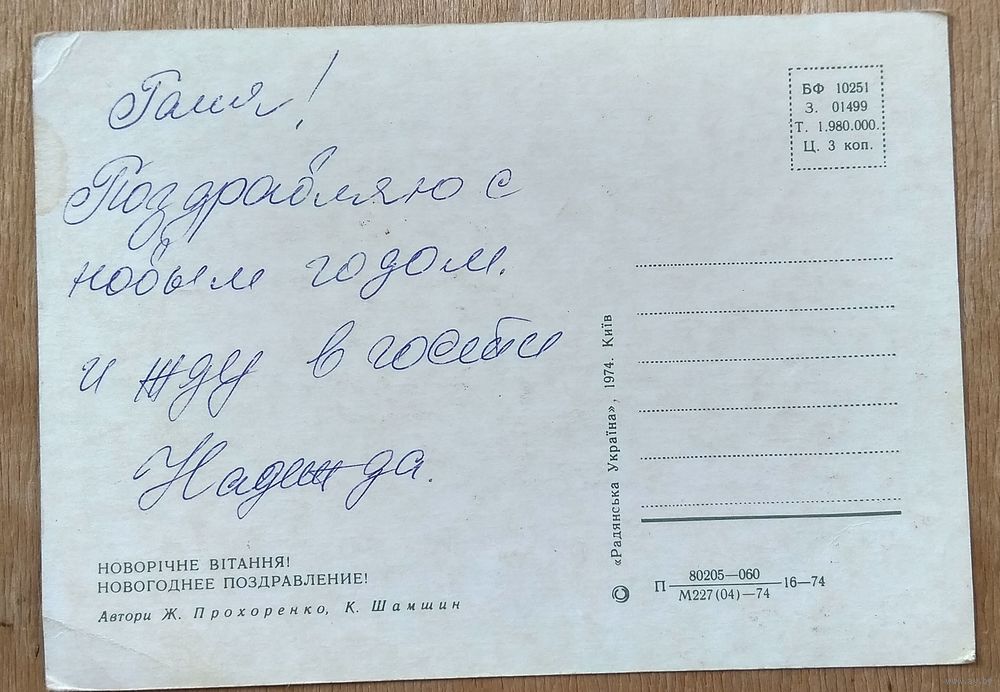 Галя!
Поздравляю с
новым годом.
и жду в гости
Надежда.
НОВОРІЧНЕ ВІТАННЯ!
НОВОГОДНЕЕ ПОЗДРАВЛЕНИЕ!
Автори Ж. Прохоренко, К. Шамшин
БФ 10251
З. 01499
Т. 1.980.000.
Ц. 3 коп.
© «Радянська Україна», 1974. Київ
П 80205—060 16—74
М227(04)—74